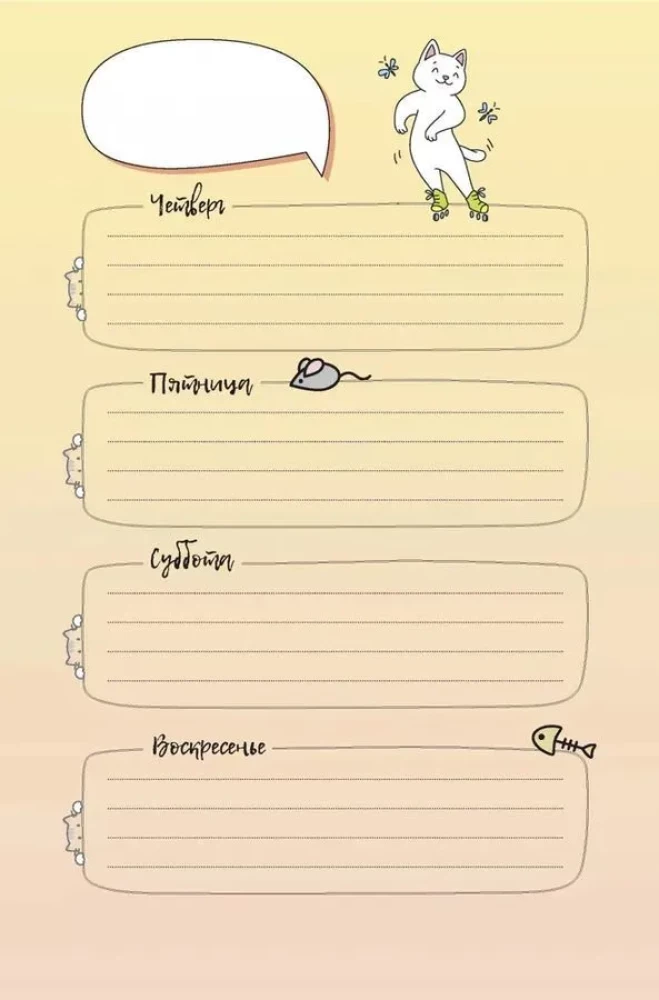 Четверг
Пятница
Суббота
Воскресенье